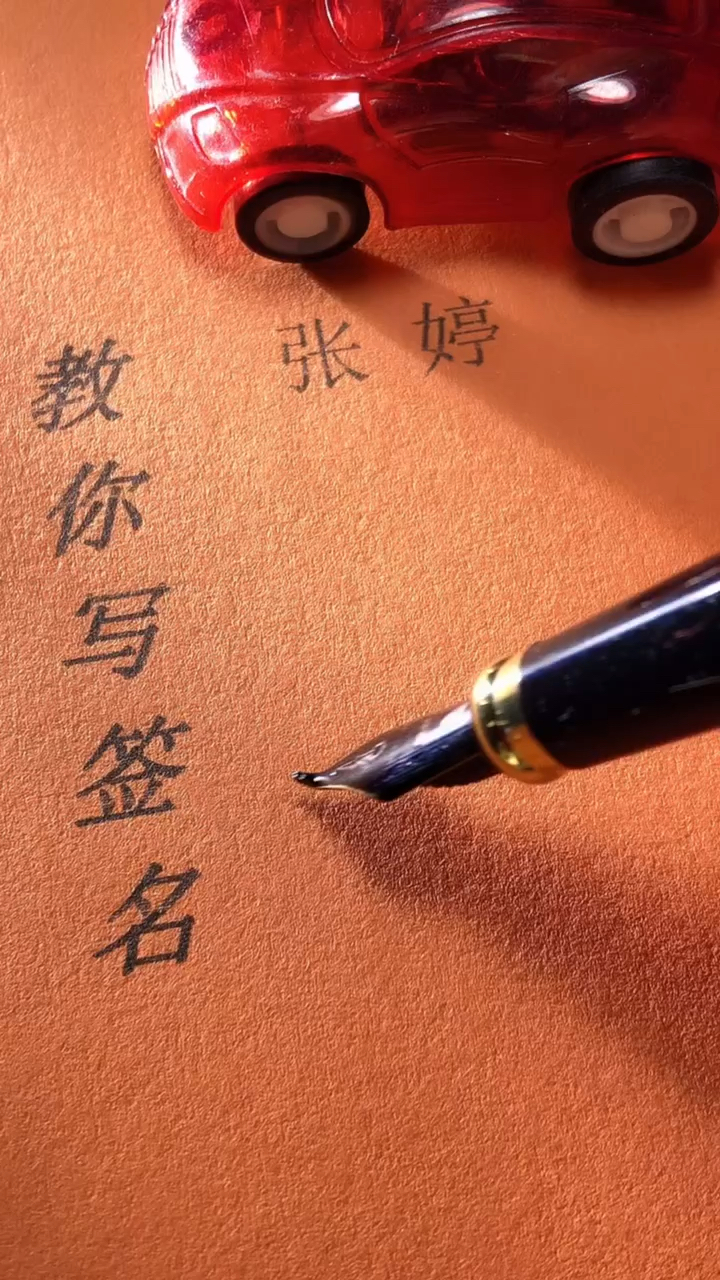 张婷
教你写签名